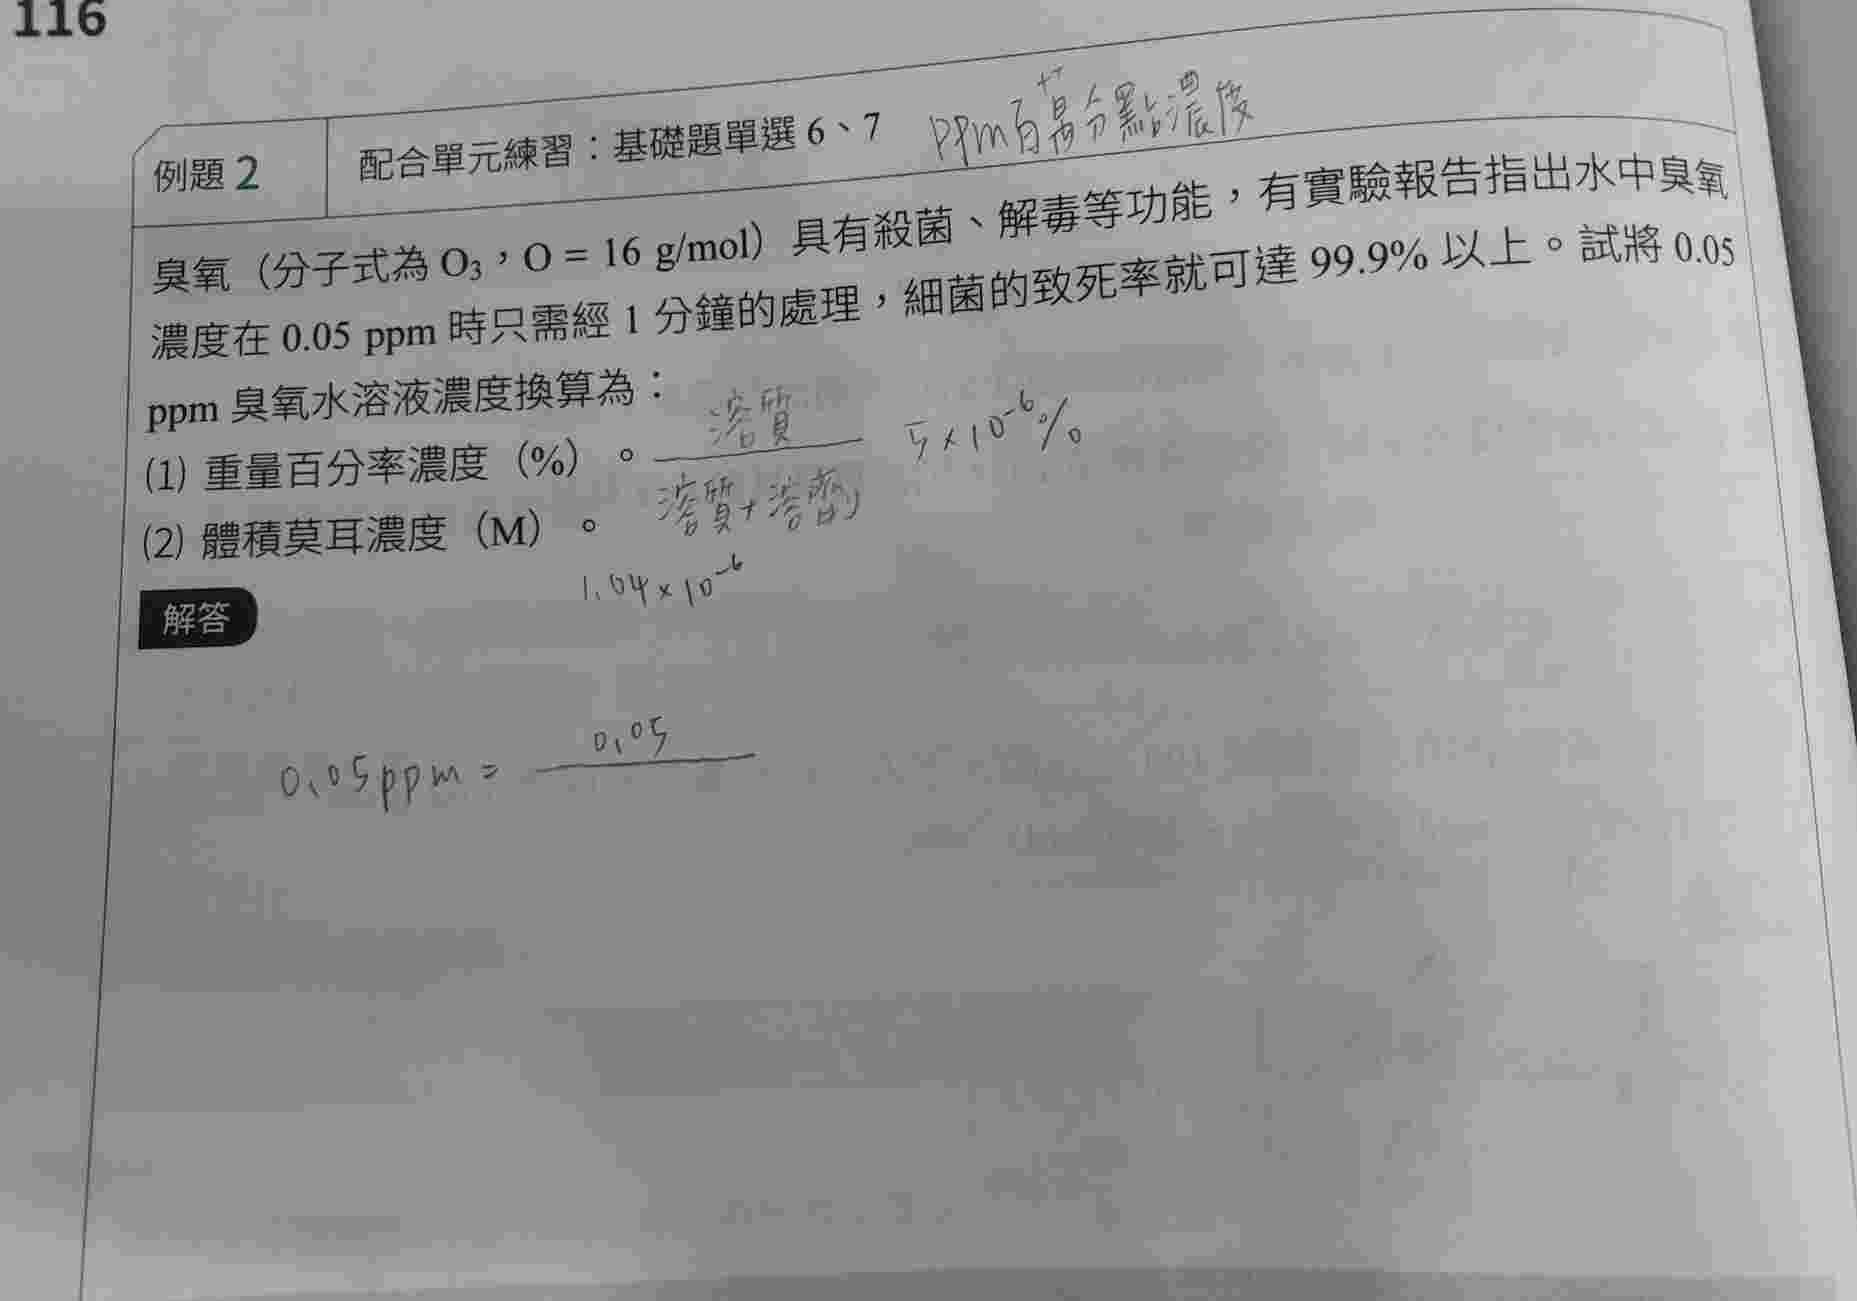 116
例題 2 配合單元練習：基礎題單選 6、7 ppm百萬分點濃度
臭氧（分子式為 O₃，O = 16 g/mol）具有殺菌、解毒等功能，有實驗報告指出水中臭氧
濃度在 0.05 ppm 時只需經 1 分鐘的處理，細菌的致死率就可達 99.9% 以上。試將 0.05
ppm 臭氧水溶液濃度換算為：
溶質
(1) 重量百分率濃度（%）。 5×10⁻⁶%
溶質+溶劑
(2) 體積莫耳濃度（M）。
1.04×10⁻⁶
解答
0.05
0.05ppm =